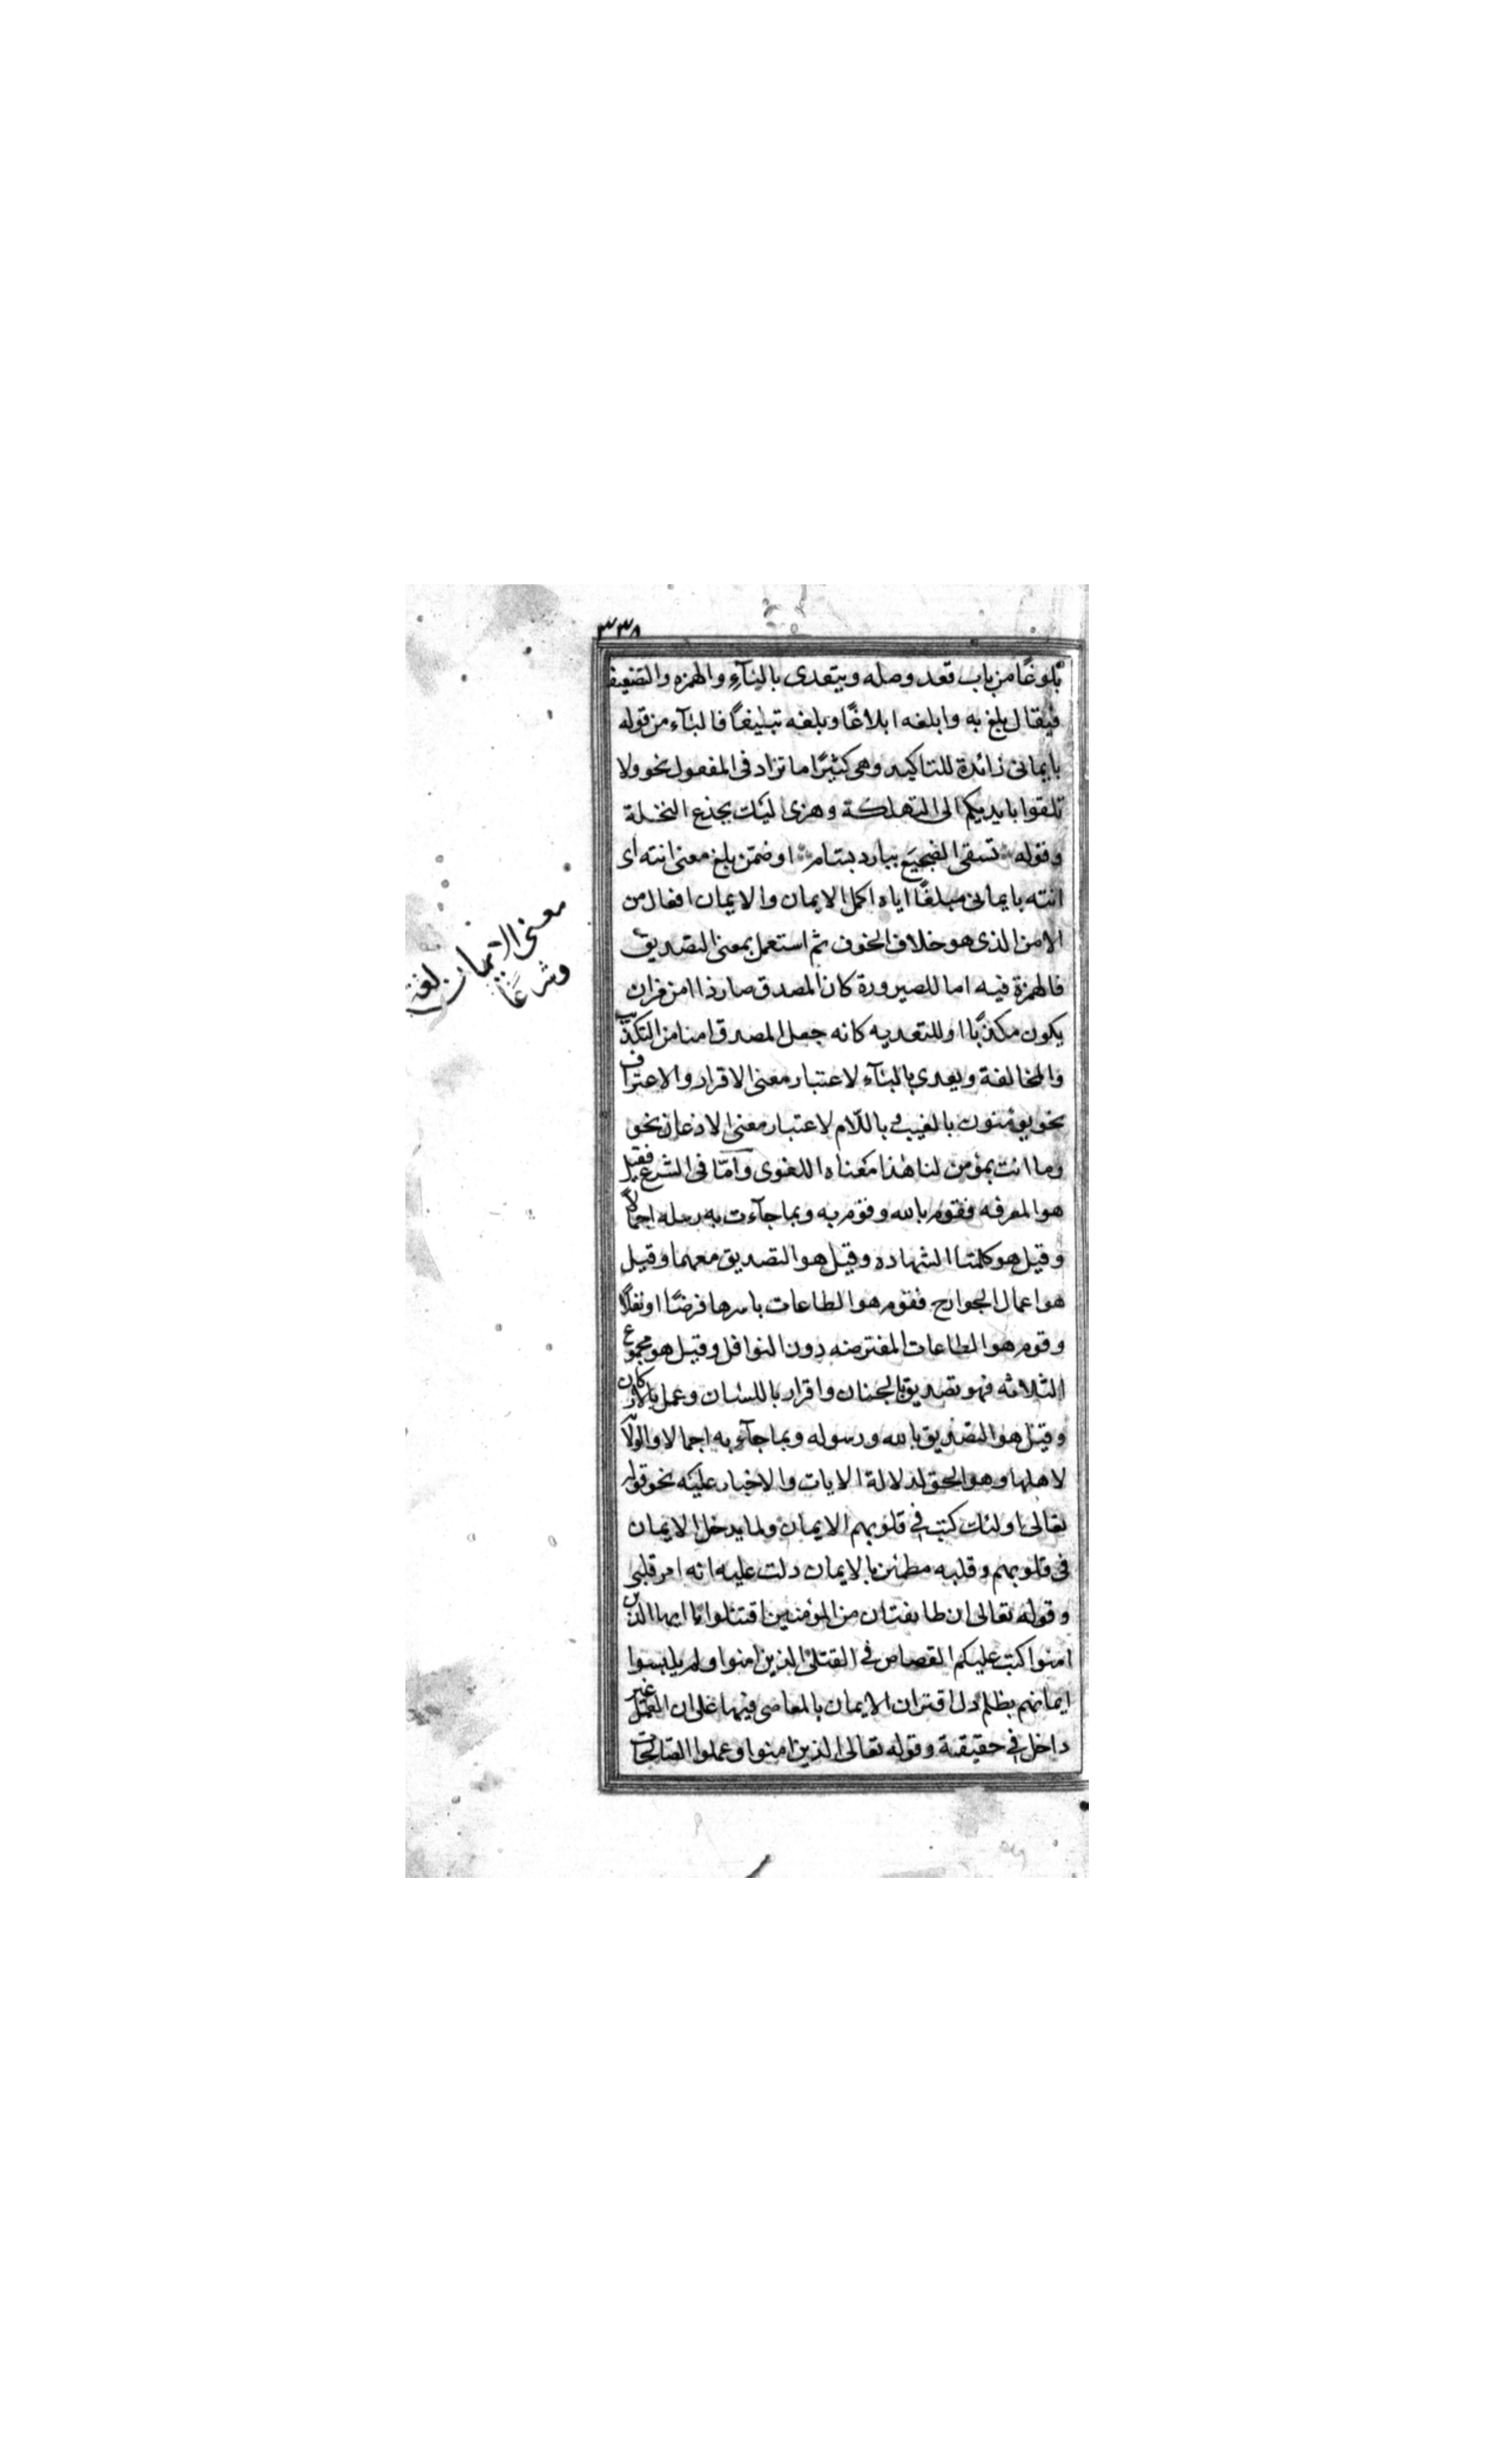 ٣٣٨
بلوغًا من باب قعد وصله ويتعدى بالبآءِ والهمزه والتضعيف
فيقال بلغ به وابلغه ابلاغًا وبلغه تبليغًا فالبآء من قوله
بايمانى زائدة للتاكيد وهى كثيرًا ما تزاد فى المفعول نحو ولا
تلقوا بايديكم الى التهلكة وهزى اليك بجذع النخلة
وقوله تسقى الضجيع ببارد بسام او ضمن بلغ معنى انته اى
انته بايمانى مبلغًا اياه اكمل الايمان والايمان افعال من
الامن الذى هو خلاف الخوف ثم استعمل بمعنى التصديق
فالهمزة فيه اما للصيرورة كان المصدق صار ذا امن من ان
يكون مكذبًا او للتعديه كانه جعل المصدق امنا من التكذيب
والمخالفة ويعدى بالبآء لاعتبار معنى الاقرار والاعتراف
نحو يؤمنون بالغيب و باللّام لاعتبار معنى الاذعان نحو
وما انت بمؤمن لنا هذا معناه اللغوى وامّا فى الشرع فقيل
هو المعرفه فقوم بالله وقوم به وبما جآءت به رسله اجمالاً
وقيل هو كلمتا الشهاده وقيل هو التصديق معهما وقيل
هو اعمال الجوارح فقوم هو الطاعات باسرها فرضًا او نفلاً
وقوم هو الطاعات المفترضه دون النوافل وقيل هو مجموع
الثلاثه فهو تصديق بالجنان واقرار باللسان وعمل بالاركان
وقيل هو التصديق بالله ورسوله وبما جآء به اجمالا والولاية
لاهلها وهو الحق لدلالة الايات والاخبار عليه نحو قوله
تعالى اولئك كتب فى قلوبهم الايمان ولما يدخل الايمان
فى قلوبهم وقلبه مطمئن بالايمان دلت عليه انه امر قلبى
وقوله تعالى ان طايفتان من المؤمنين اقتتلوا يا ايها الذين
امنوا كتب عليكم القصاص فى القتلى الذين امنوا ولم يلبسوا
ايمانهم بظلم دل اقتران الايمان بالمعاصى فيها على ان العمل غير
داخل فى حقيقته وقوله تعالى الذين امنوا وعملوا الصالحات
معنى الايمان لغة
وشرعًا